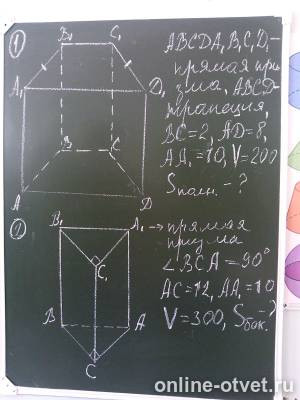 1
B₁ C₁
A₁ D₁
B C
A D
ABCDA₁B₁C₁D₁ –
прямая при
зма, ABCD-
трапеция,
BC=2, AD=8,
AA₁=10, V=200
Sполн. - ?
2
B₁ A₁
C₁
B A
C
→ прямая
призма
∠BCA=90°
AC=12, AA₁=10
V=300, Sбок.-?
online-otvet.ru